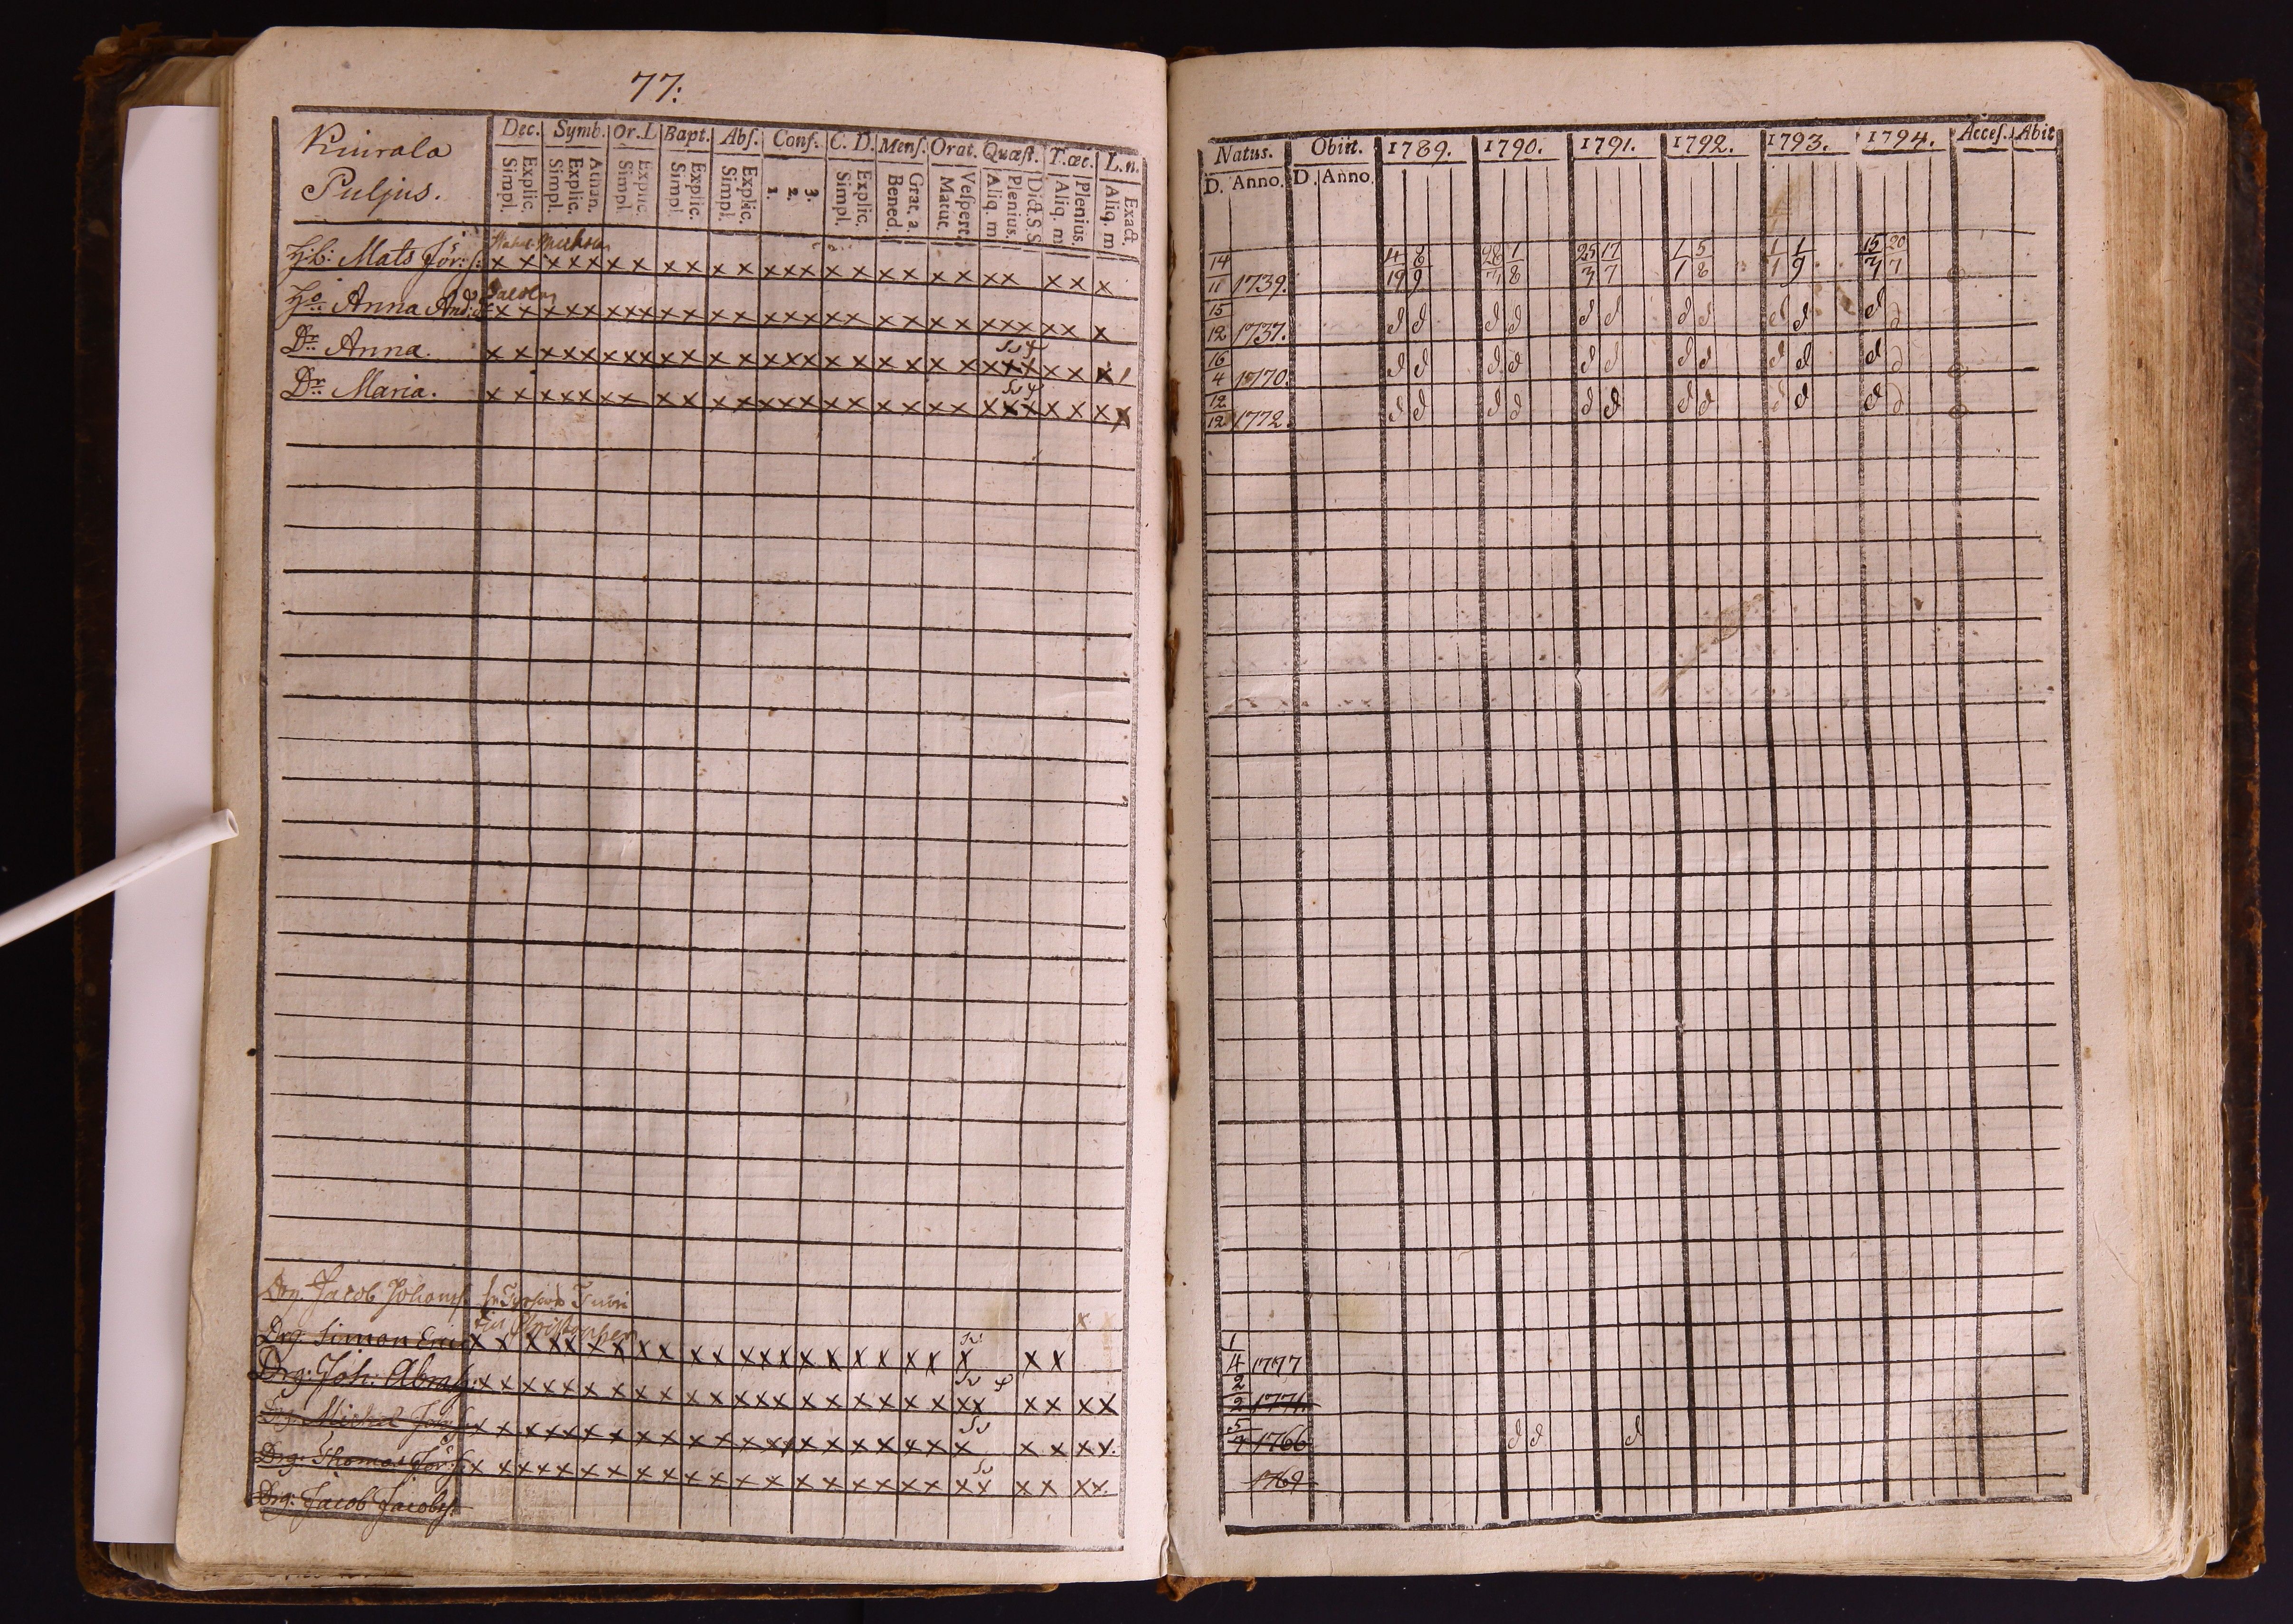 77:
Kuirala
Puljus.
Dec. Symb. Or. L Bapt. Abſ. Conf. C. D. Menſ. Orat. Quæſt. T. œc. L. n.
Simpl. Explic. Simpl. Explic. Athan. Simpl. Explic. Simpl. Explic. Simpl. Explic. 1. 2. 3. Simpl. Explic. Bened. Grat. a. Matut. Veſpert. Aliq. m Plenius. Dict. S.S Aliq. m Plenius. Aliq. m Exact.
H.b: Mats Jör: s: x x x x x x x x x x x x x x x x x x x x x x x x x x
Ho: Anna And: d: x x x x x x x x x x x x x x x x x x x x x x x x x x
Dr: Anna. x x x x x x x x x x x x x x x x x x x x x x x x x x x
Dr: Maria. x x x x x x x x x x x x x x x x x x x x x x x x x x x
Drg Jacob Johans
Drg: Simon Eric x x x x x x x x x x x x x x x x x x x x x x x
Drg: Joh: Abrahs: x x x x x x x x x x x x x x x x x x x x x x x x x
Drg: Michel x x x x x x x x x x x x x x x x x x x x x x x x x
Drg: Thomas Jör: s: x x x x x x x x x x x x x x x x x x x x x x x x x
Drg: Jacob Jacobs:
Natus. Obiit. 1789. 1790. 1791. 1792. 1793. 1794. Acceſ. Abit
D. Anno. D. Anno.
14/11 1739. 4/19 8/9 28/3 1/8 25/3 17/7 1/1 5/8 1/1 1/9 15/3 20/7
15/12 1737. d d d d d d d d d d d d
16/4 1770. d d d d d d d d d d d d
12/12 1772. d d d d d d d d d d d d
1/4 1777
2/2 1771.
5/7 1766 d d d
1769